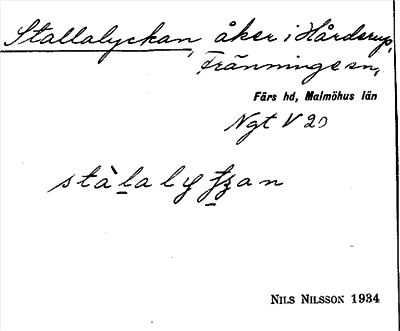 Stallalyckan, åker i Hårderup,
Tränninge sn,
Färs hd, Malmöhus län
Ngt V 20
stàlalyʃʒan
NILS NILSSON 1934